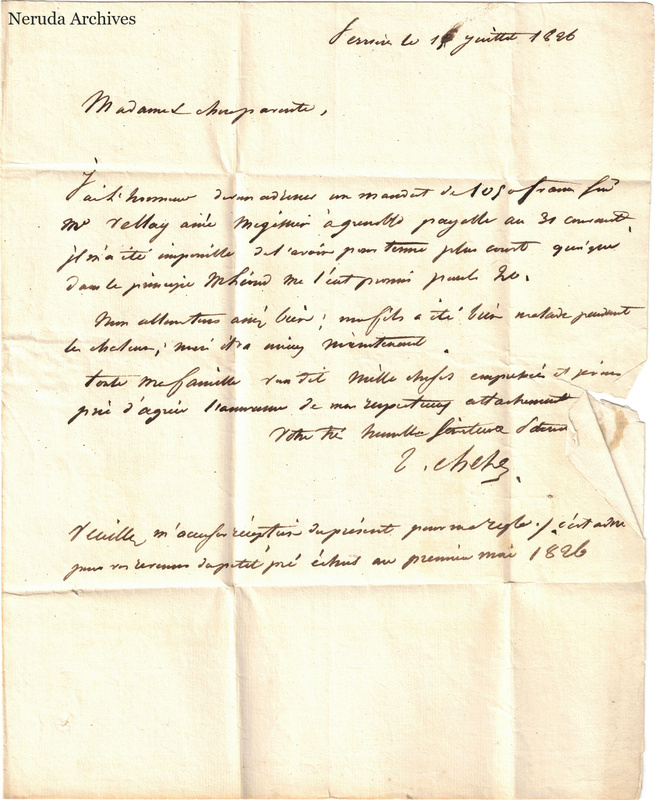 Neruda Archives
le 1 juillet 1826
Madame & chere parente,
J'ai l'honneur de vous adresser un mandat de 1050 francs sur
Mr Vellay ainé Megissier à grenoble payable au 31 courant
il m'a été impossible de l'avoir pour terme plus court quoique
dans le principe me l'eut promis pour le 20.
bien ; mon fils a été bien malade pendant
les chaleurs ; mais il va mieux maintenant.
toute ma famille vous dit mille choses empressées et je vous
prie d'agréer l'assurance de mon respectueux attachement
Votre tré humble
veuillez m'accuser réception du présent pour ma regle . / c'est
pour vos revenus du petit pré échus au premier mai 1826